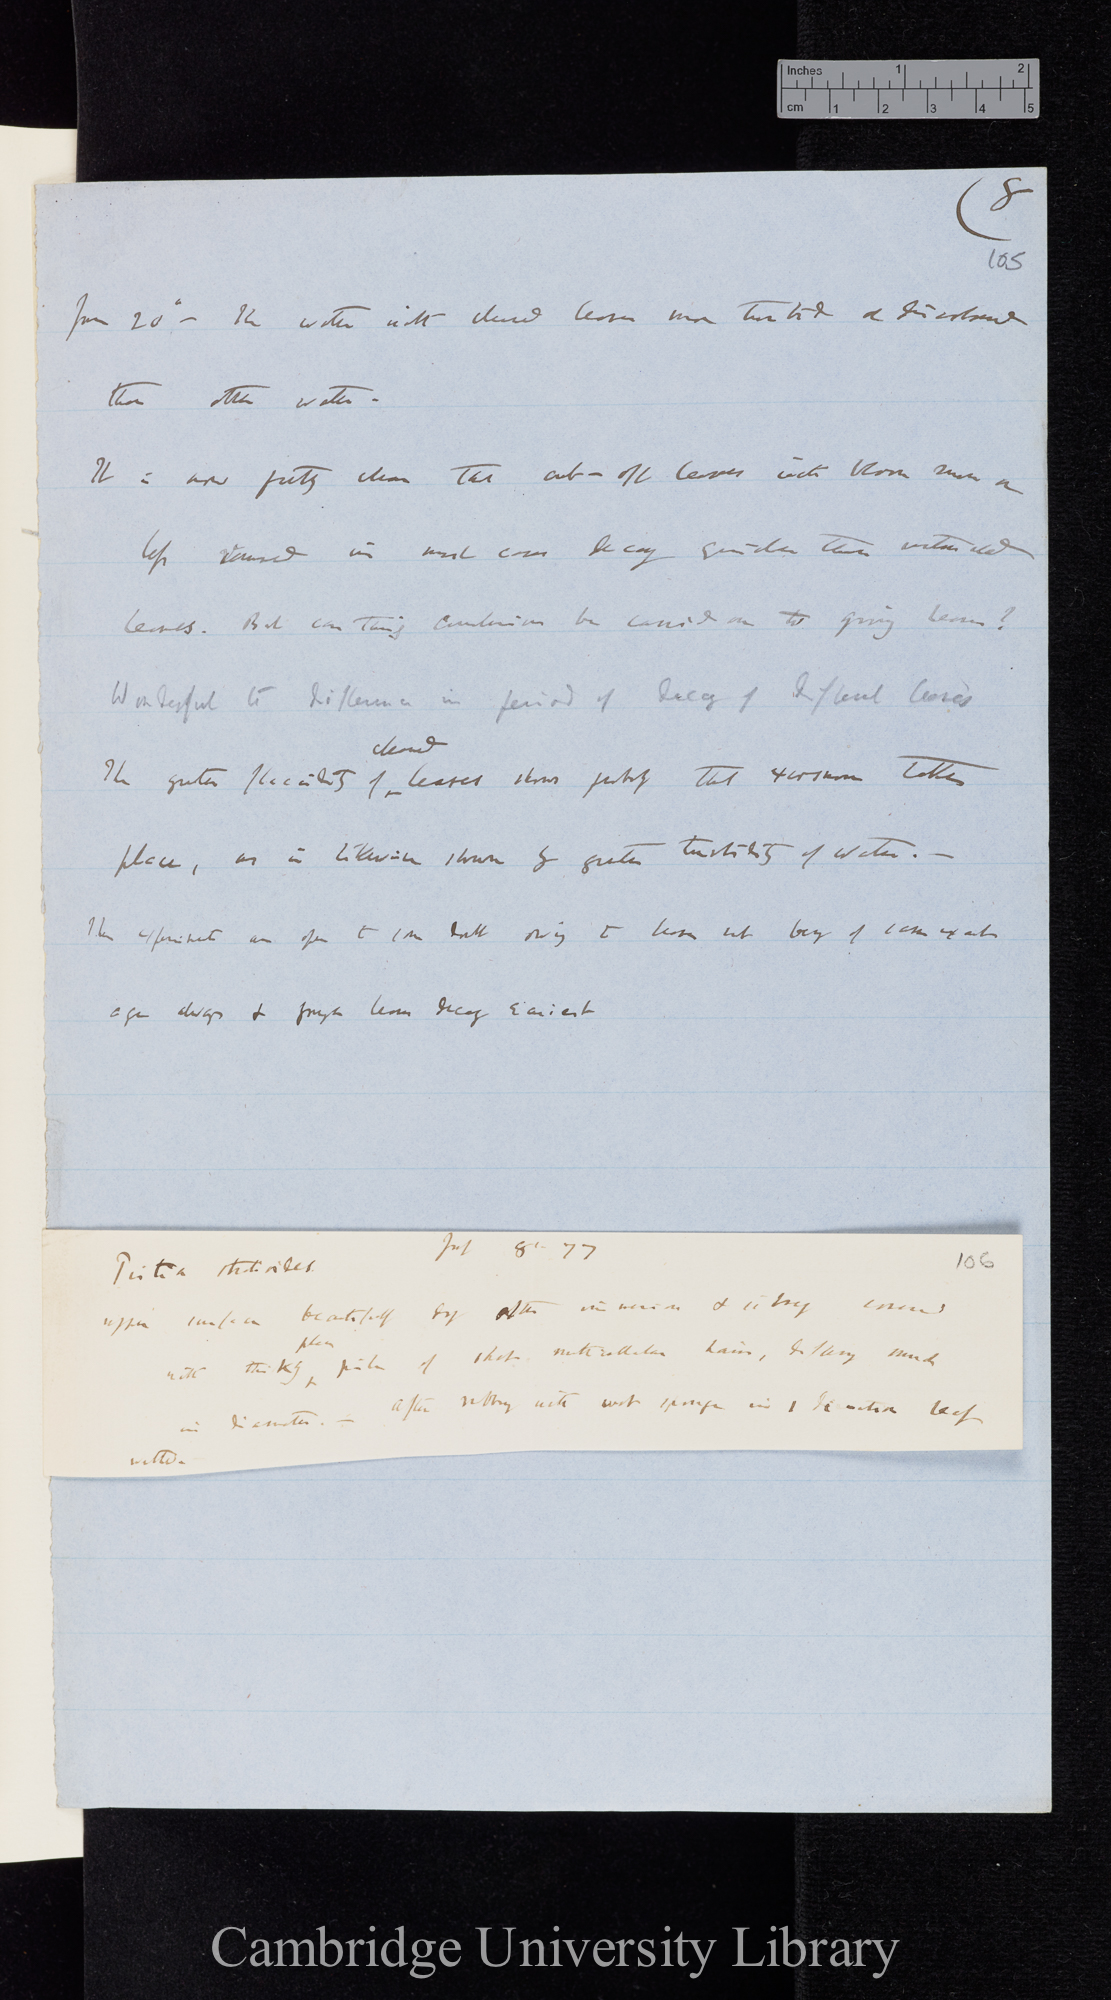 Inches 1 2
cm 1 2 3 4 5
(8
105
from 20° — The water with cleaned leaves more turbid & discoloured
than other water —
It is now pretty clear that cut-off leaves with bloom removed or
left in most cases decay quicker than
leaves. But can this conclusion be carried on to growing leaves?
Wonderful the difference in period of decay of different leaves
cleaned
The greater flaccidity of leaves shows probably that exosmose takes
place, as is likewise shown by greater turbidity of water. —
The experiments are open to some doubt owing to leaves not being of same exact
age always & younger leaves decay easiest
July 8th 77
106
Pistia stratiotes
upper surface beautifully dry after immersion & covered
plan
with of short multicellular hairs, differing much
in diameter. — After rubbing with wet sponge in 1 direction leaf
wetted
Cambridge University Library